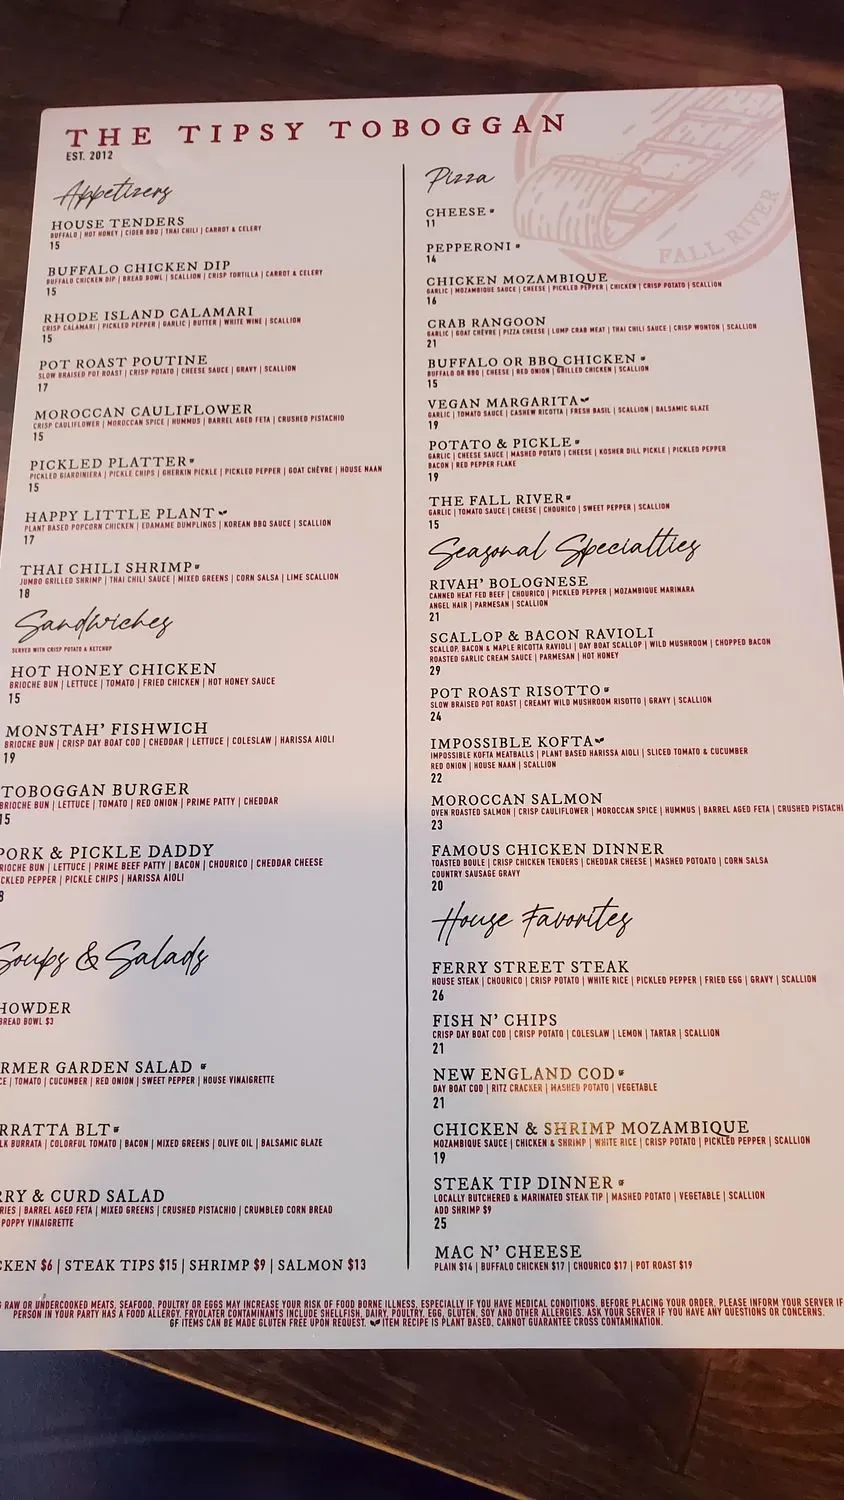 THE TIPSY TOBOGGAN
EST. 2012
FALL RIVER
Appetizers
HOUSE TENDERS
BUFFALO | HOT HONEY | CIDER BBQ | THAI CHILI | CARROT & CELERY
15
BUFFALO CHICKEN DIP
BUFFALO CHICKEN DIP | BREAD BOWL | SCALLION | CRISP TORTILLA | CARROT & CELERY
15
RHODE ISLAND CALAMARI
CRISP CALAMARI | PICKLED PEPPER | GARLIC | BUTTER | WHITE WINE | SCALLION
15
POT ROAST POUTINE
SLOW BRAISED POT ROAST | CRISP POTATO | CHEESE SAUCE | GRAVY | SCALLION
17
MOROCCAN CAULIFLOWER
CRISP CAULIFLOWER | MOROCCAN SPICE | HUMMUS | BARREL AGED FETA | CRUSHED PISTACHIO
15
PICKLED PLATTER GF
PICKLED GIARDINIERA | PICKLE CHIPS | GHERKIN PICKLE | PICKLED PEPPER | GOAT CHÈVRE | HOUSE NAAN
15
HAPPY LITTLE PLANT
PLANT BASED POPCORN CHICKEN | EDAMAME DUMPLINGS | KOREAN BBQ SAUCE | SCALLION
17
THAI CHILI SHRIMP GF
JUMBO GRILLED SHRIMP | THAI CHILI SAUCE | MIXED GREENS | CORN SALSA | LIME SCALLION
18
Sandwiches
SERVED WITH CRISP POTATO & KETCHUP
HOT HONEY CHICKEN
BRIOCHE BUN | LETTUCE | TOMATO | FRIED CHICKEN | HOT HONEY SAUCE
15
MONSTAH' FISHWICH
BRIOCHE BUN | CRISP DAY BOAT COD | CHEDDAR | LETTUCE | COLESLAW | HARISSA AIOLI
19
TOBOGGAN BURGER
BRIOCHE BUN | LETTUCE | TOMATO | RED ONION | PRIME PATTY | CHEDDAR
15
PORK & PICKLE DADDY
RIOCHE BUN | LETTUCE | PRIME BEEF PATTY | BACON | CHOURICO | CHEDDAR CHEESE
CKLED PEPPER | PICKLE CHIPS | HARISSA AIOLI
8
Soups & Salads
HOWDER
BREAD BOWL $3
RMER GARDEN SALAD GF
CE | TOMATO | CUCUMBER | RED ONION | SWEET PEPPER | HOUSE VINAIGRETTE
RRATTA BLT GF
LK BURRATA | COLORFUL TOMATO | BACON | MIXED GREENS | OLIVE OIL | BALSAMIC GLAZE
RRY & CURD SALAD
RIES | BARREL AGED FETA | MIXED GREENS | CRUSHED PISTACHIO | CRUMBLED CORN BREAD
POPPY VINAIGRETTE
CKEN $6 | STEAK TIPS $15 | SHRIMP $9 | SALMON $13
Pizza
CHEESE GF
11
PEPPERONI GF
14
CHICKEN MOZAMBIQUE
GARLIC | MOZAMBIQUE SAUCE | CHEESE | PICKLED PEPPER | CHICKEN | CRISP POTATO | SCALLION
16
CRAB RANGOON
GARLIC | GOAT CHÈVRE | PIZZA CHEESE | LUMP CRAB MEAT | THAI CHILI SAUCE | CRISP WONTON | SCALLION
21
BUFFALO OR BBQ CHICKEN GF
BUFFALO OR BBQ | CHEESE | RED ONION | GRILLED CHICKEN | SCALLION
15
VEGAN MARGARITA
GARLIC | TOMATO SAUCE | CASHEW RICOTTA | FRESH BASIL | SCALLION | BALSAMIC GLAZE
19
POTATO & PICKLE GF
GARLIC | CHEESE SAUCE | MASHED POTATO | CHEESE | KOSHER DILL PICKLE | PICKLED PEPPER
BACON | RED PEPPER FLAKE
19
THE FALL RIVER GF
GARLIC | TOMATO SAUCE | CHEESE | CHOURICO | SWEET PEPPER | SCALLION
15
Seasonal Specialties
RIVAH' BOLOGNESE
CANNED HEAT FED BEEF | CHOURICO | PICKLED PEPPER | MOZAMBIQUE MARINARA
ANGEL HAIR | PARMESAN | SCALLION
21
SCALLOP & BACON RAVIOLI
SCALLOP, BACON & MAPLE RICOTTA RAVIOLI | DAY BOAT SCALLOP | WILD MUSHROOM | CHOPPED BACON
ROASTED GARLIC CREAM SAUCE | PARMESAN | HOT HONEY
29
POT ROAST RISOTTO GF
SLOW BRAISED POT ROAST | CREAMY WILD MUSHROOM RISOTTO | GRAVY | SCALLION
24
IMPOSSIBLE KOFTA
IMPOSSIBLE KOFTA MEATBALLS | PLANT BASED HARISSA AIOLI | SLICED TOMATO & CUCUMBER
RED ONION | HOUSE NAAN | SCALLION
22
MOROCCAN SALMON
OVEN ROASTED SALMON | CRISP CAULIFLOWER | MOROCCAN SPICE | HUMMUS | BARREL AGED FETA | CRUSHED PISTACHI
23
FAMOUS CHICKEN DINNER
TOASTED BOULE | CRISP CHICKEN TENDERS | CHEDDAR CHEESE | MASHED POTOATO | CORN SALSA
COUNTRY SAUSAGE GRAVY
20
House Favorites
FERRY STREET STEAK
HOUSE STEAK | CHOURICO | CRISP POTATO | WHITE RICE | PICKLED PEPPER | FRIED EGG | GRAVY | SCALLION
26
FISH N' CHIPS
CRISP DAY BOAT COD | CRISP POTATO | COLESLAW | LEMON | TARTAR | SCALLION
21
NEW ENGLAND COD GF
DAY BOAT COD | RITZ CRACKER | MASHED POTATO | VEGETABLE
21
CHICKEN & SHRIMP MOZAMBIQUE
MOZAMBIQUE SAUCE | CHICKEN & SHRIMP | WHITE RICE | CRISP POTATO | PICKLED PEPPER | SCALLION
19
STEAK TIP DINNER GF
LOCALLY BUTCHERED & MARINATED STEAK TIP | MASHED POTATO | VEGETABLE | SCALLION
ADD SHRIMP $9
25
MAC N' CHEESE
PLAIN $14 | BUFFALO CHICKEN $17 | CHOURICO $17 | POT ROAST $19
G RAW OR UNDERCOOKED MEATS, SEAFOOD, POULTRY OR EGGS MAY INCREASE YOUR RISK OF FOOD BORNE ILLNESS, ESPECIALLY IF YOU HAVE MEDICAL CONDITIONS. BEFORE PLACING YOUR ORDER, PLEASE INFORM YOUR SERVER IF
PERSON IN YOUR PARTY HAS A FOOD ALLERGY. FRYOLATER CONTAMINANTS INCLUDE SHELLFISH, DAIRY, POULTRY, EGG, GLUTEN, SOY AND OTHER ALLERGIES. ASK YOUR SERVER IF YOU HAVE ANY QUESTIONS OR CONCERNS.
GF ITEMS CAN BE MADE GLUTEN FREE UPON REQUEST. ITEM RECIPE IS PLANT BASED, CANNOT GUARANTEE CROSS CONTAMINATION.